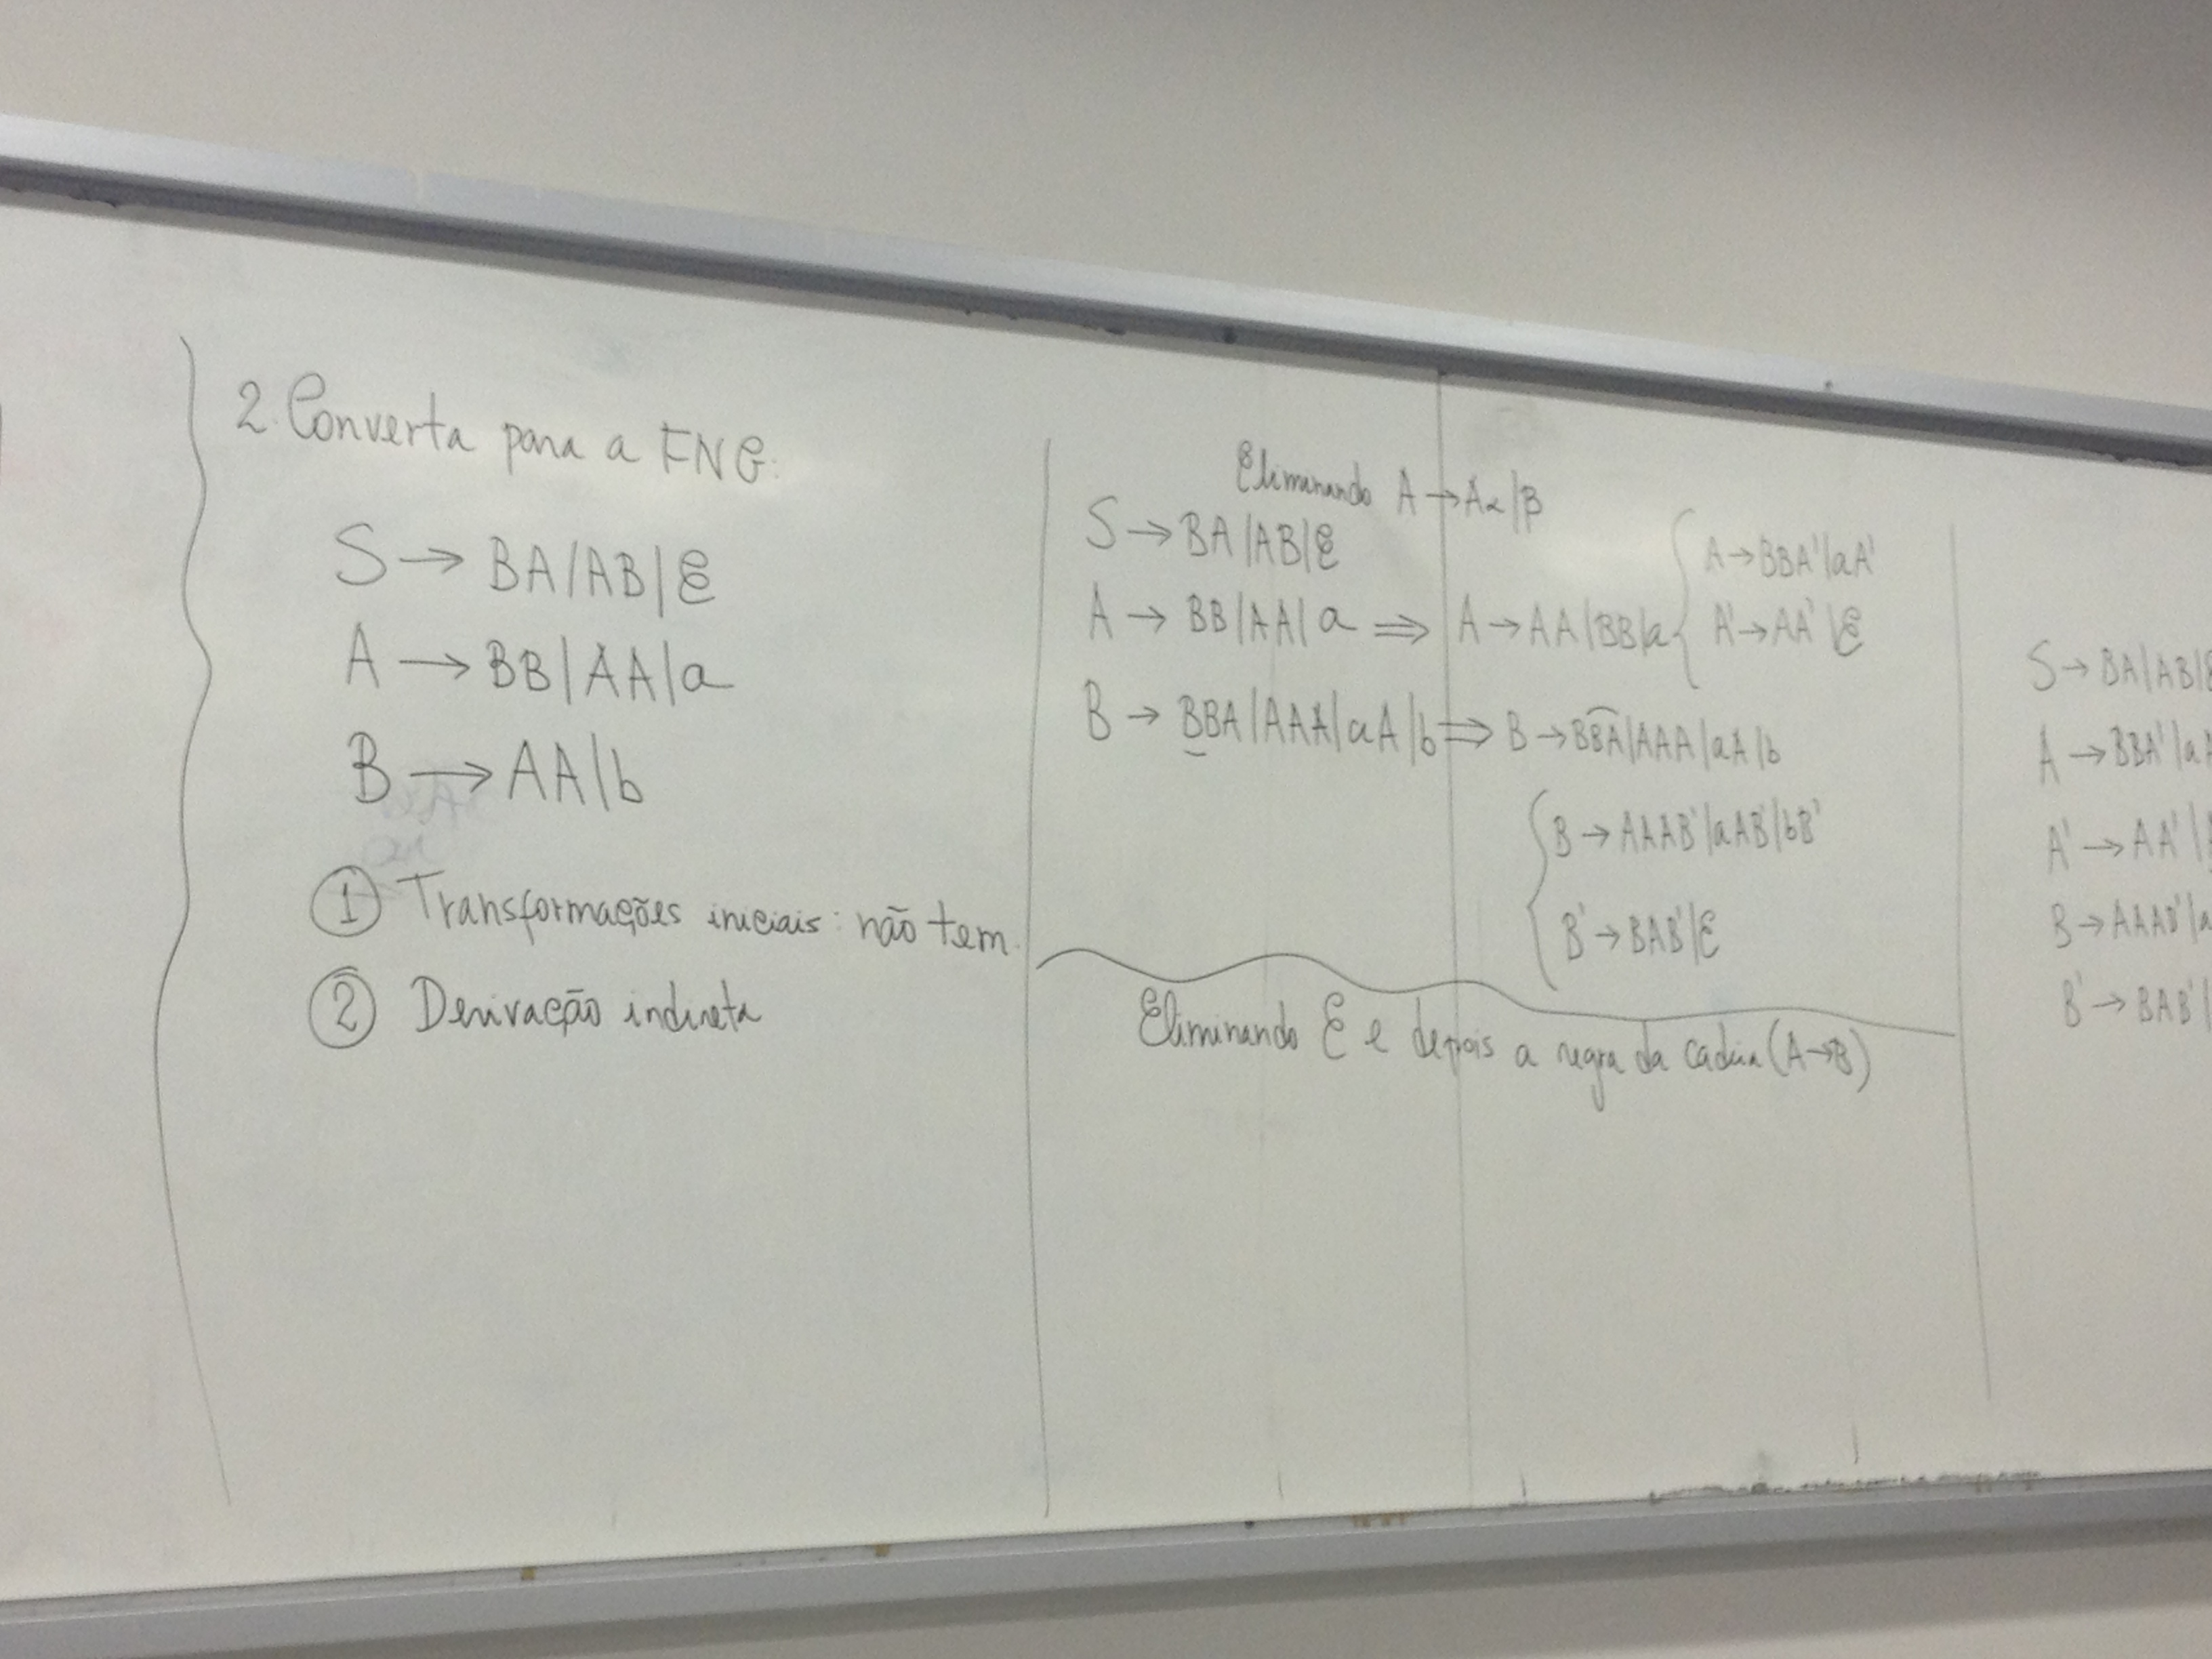 2. Converta para a FNG:
S → BA|AB|ε
A → BB|AA|a
B → AA|b
① Transformações iniciais: não tem.
② Derivação indireta
Eliminando A → Aα|β
S → BA|AB|ε
A → BB|AA|a ⇒ A → AA|BB|a
A → BBA'|aA'
A' → AA'|ε
B → BBA|AAA|aA|b ⇒ B → BBA|AAA|aA|b
B → AAAB'|aAB'|bB'
B' → BAB'|ε
Eliminando ε e depois a regra da cadeia (A→B)
S → BA|AB|ε
A → BBA'|aA
A' → AA'|
B → AAAB'|a
B' → BAB'|